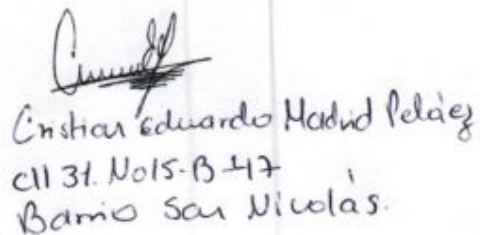 Cristian Eduardo Madrid Peláez
Cll 31. No15-B-47
Barrio San Nicolás.